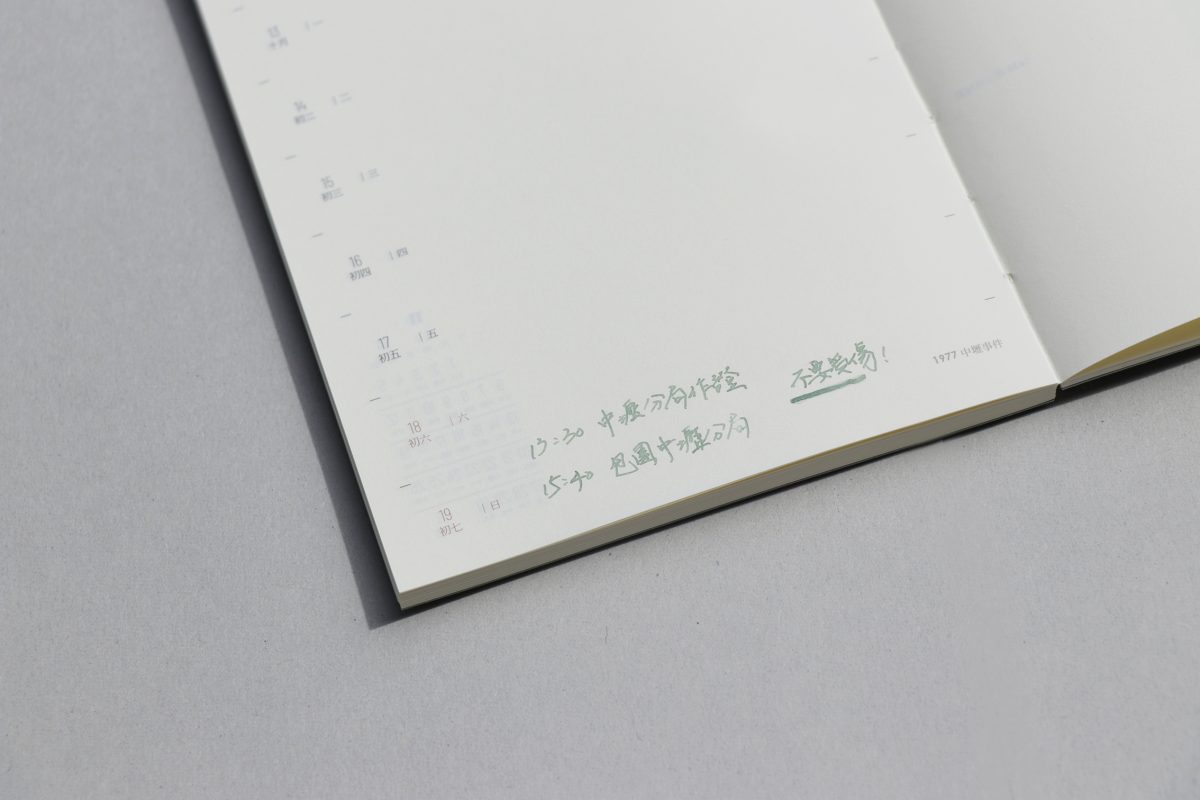 13 | 一
14 | 二
初二
15 | 三
初三
16 | 四
初四
17 | 五
初五
18 | 六
初六
19 | 日
初七
13:30 中壢分局作證 不要受傷!
15:40 包圍中壢分局
1977 中壢事件